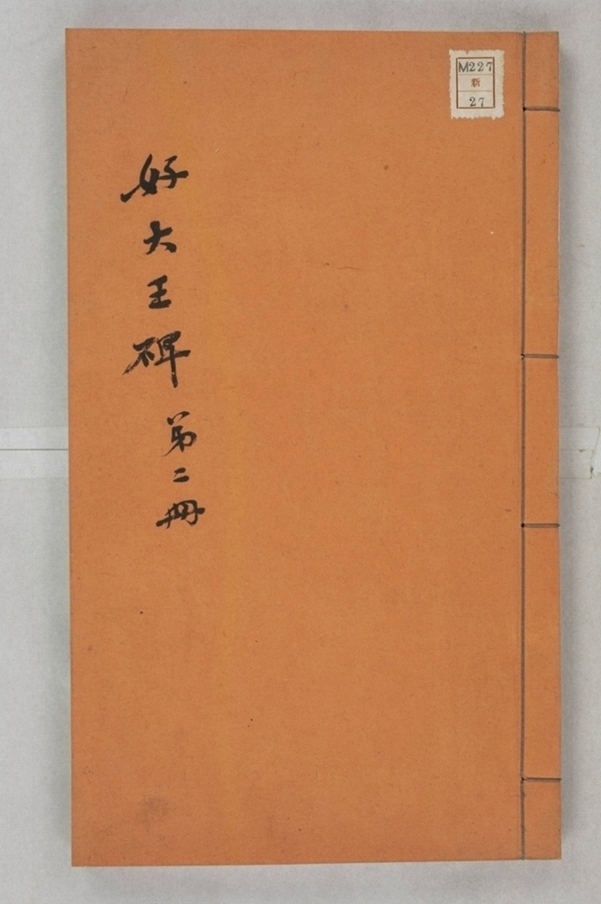 M227
新
27
好大王碑 第二冊